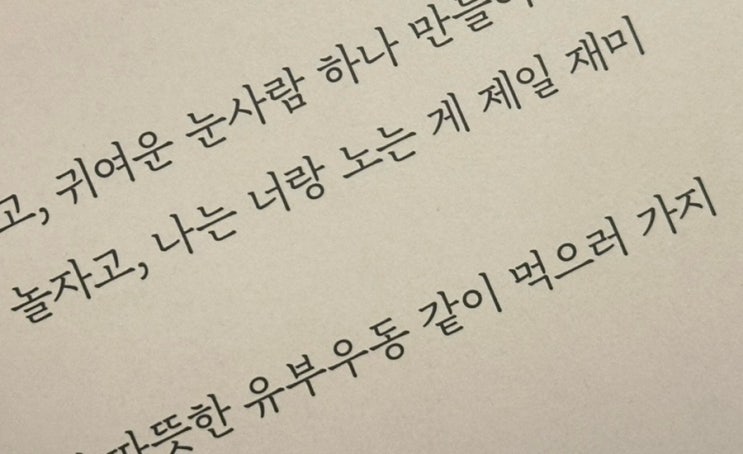 고, 귀여운 눈사람 하나
놀자고, 나는 너랑 노는 게 제일 재미
따뜻한 유부우동 같이 먹으러 가지